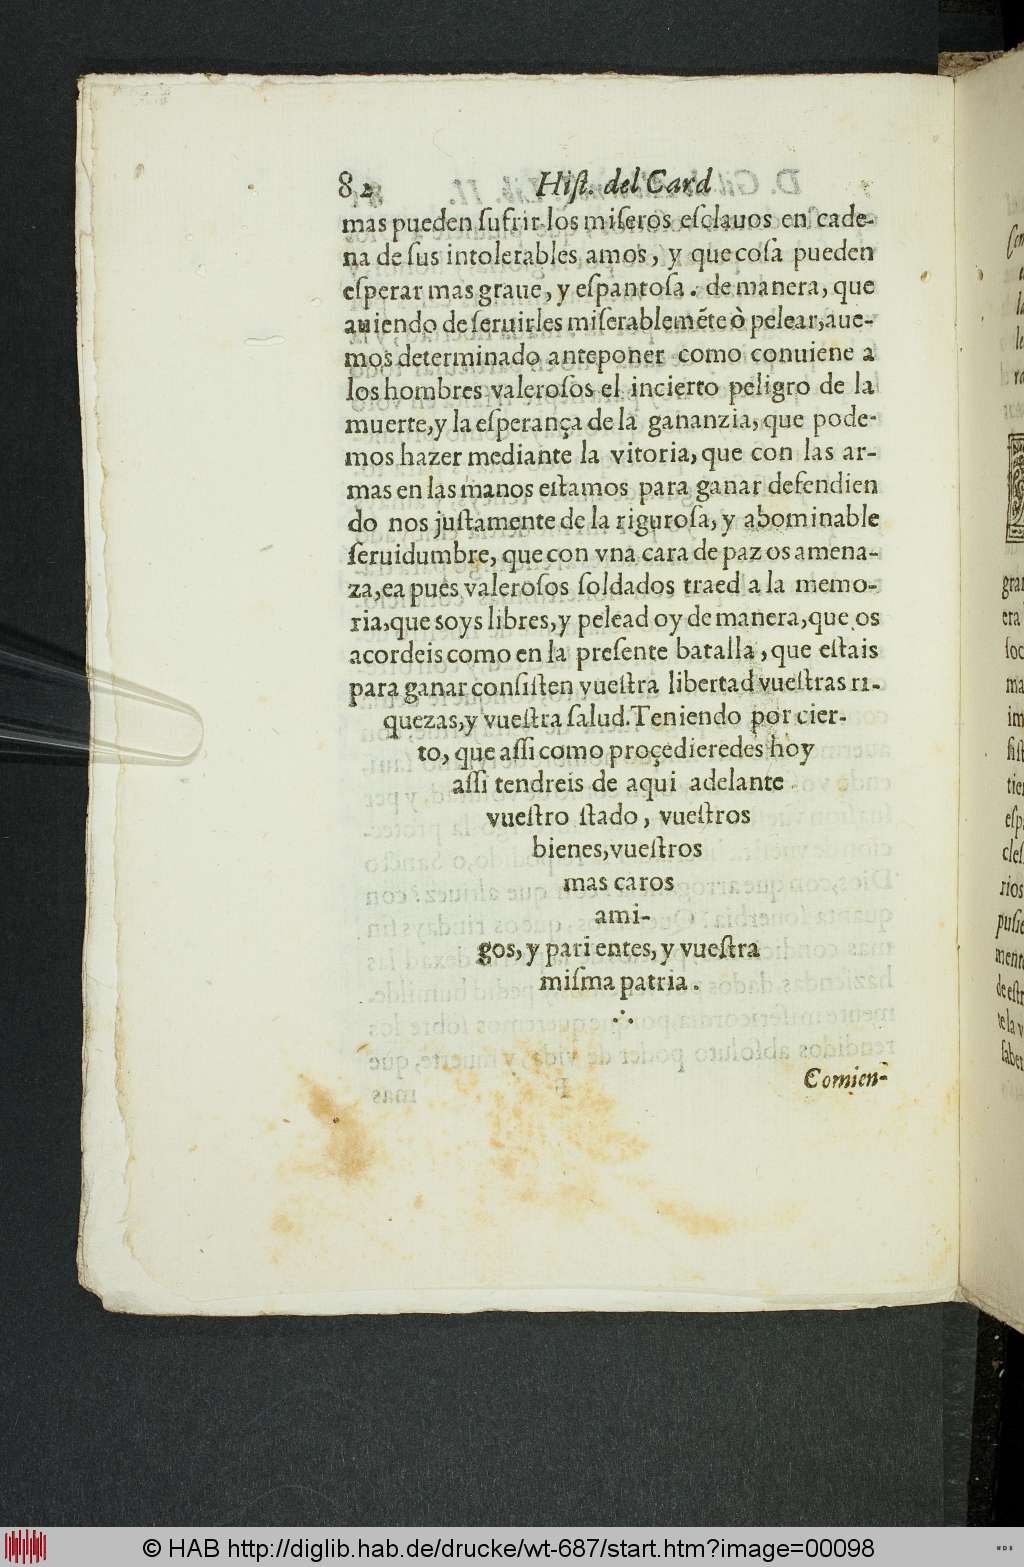 82 Hiſt. del Card
mas pueden ſufrir los miſeros eſclauos en cade-
na de ſus intolerables amos, y que coſa pueden
eſperar mas graue, y eſpantoſa. de manera, que
auiendo de ſeruirles miſerablemẽte ò pelear, aue-
mos determinado anteponer como conuiene a
los hombres valeroſos el incierto peligro de la
muerte, y la eſperança de la gananzia, que pode-
mos hazer mediante la vitoria, que con las ar-
mas en las manos eſtamos para ganar defendien
do nos juſtamente de la riguroſa, y abominable
ſeruidumbre, que con vna cara de paz os amena-
za, ea pues valeroſos ſoldados traed a la memo-
ria, que soys libres, y pelead oy de manera, que os
acordeis como en la preſente batalla, que eſtais
para ganar conſiſten vueſtra libertad vueſtras ri-
quezas, y vueſtra ſalud. Teniendo por cier-
to, que aſſi como proçedieredes hoy
aſſi tendreis de aqui adelante
vueſtro ſtado, vueſtros
bienes, vueſtros
mas caros
ami-
gos, y pari entes, y vueſtra
miſma patria.
∴
Comien-
© HAB http://diglib.hab.de/drucke/wt-687/start.htm?image=00098